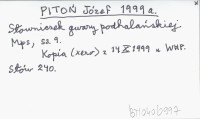 PITOŃ Józef 1999 a.
Słowniczek gwary podhalańskiej.
Mps, ss. 9.
Kopia (xero) z 14 X 1999 u WHP.
Słów 240.